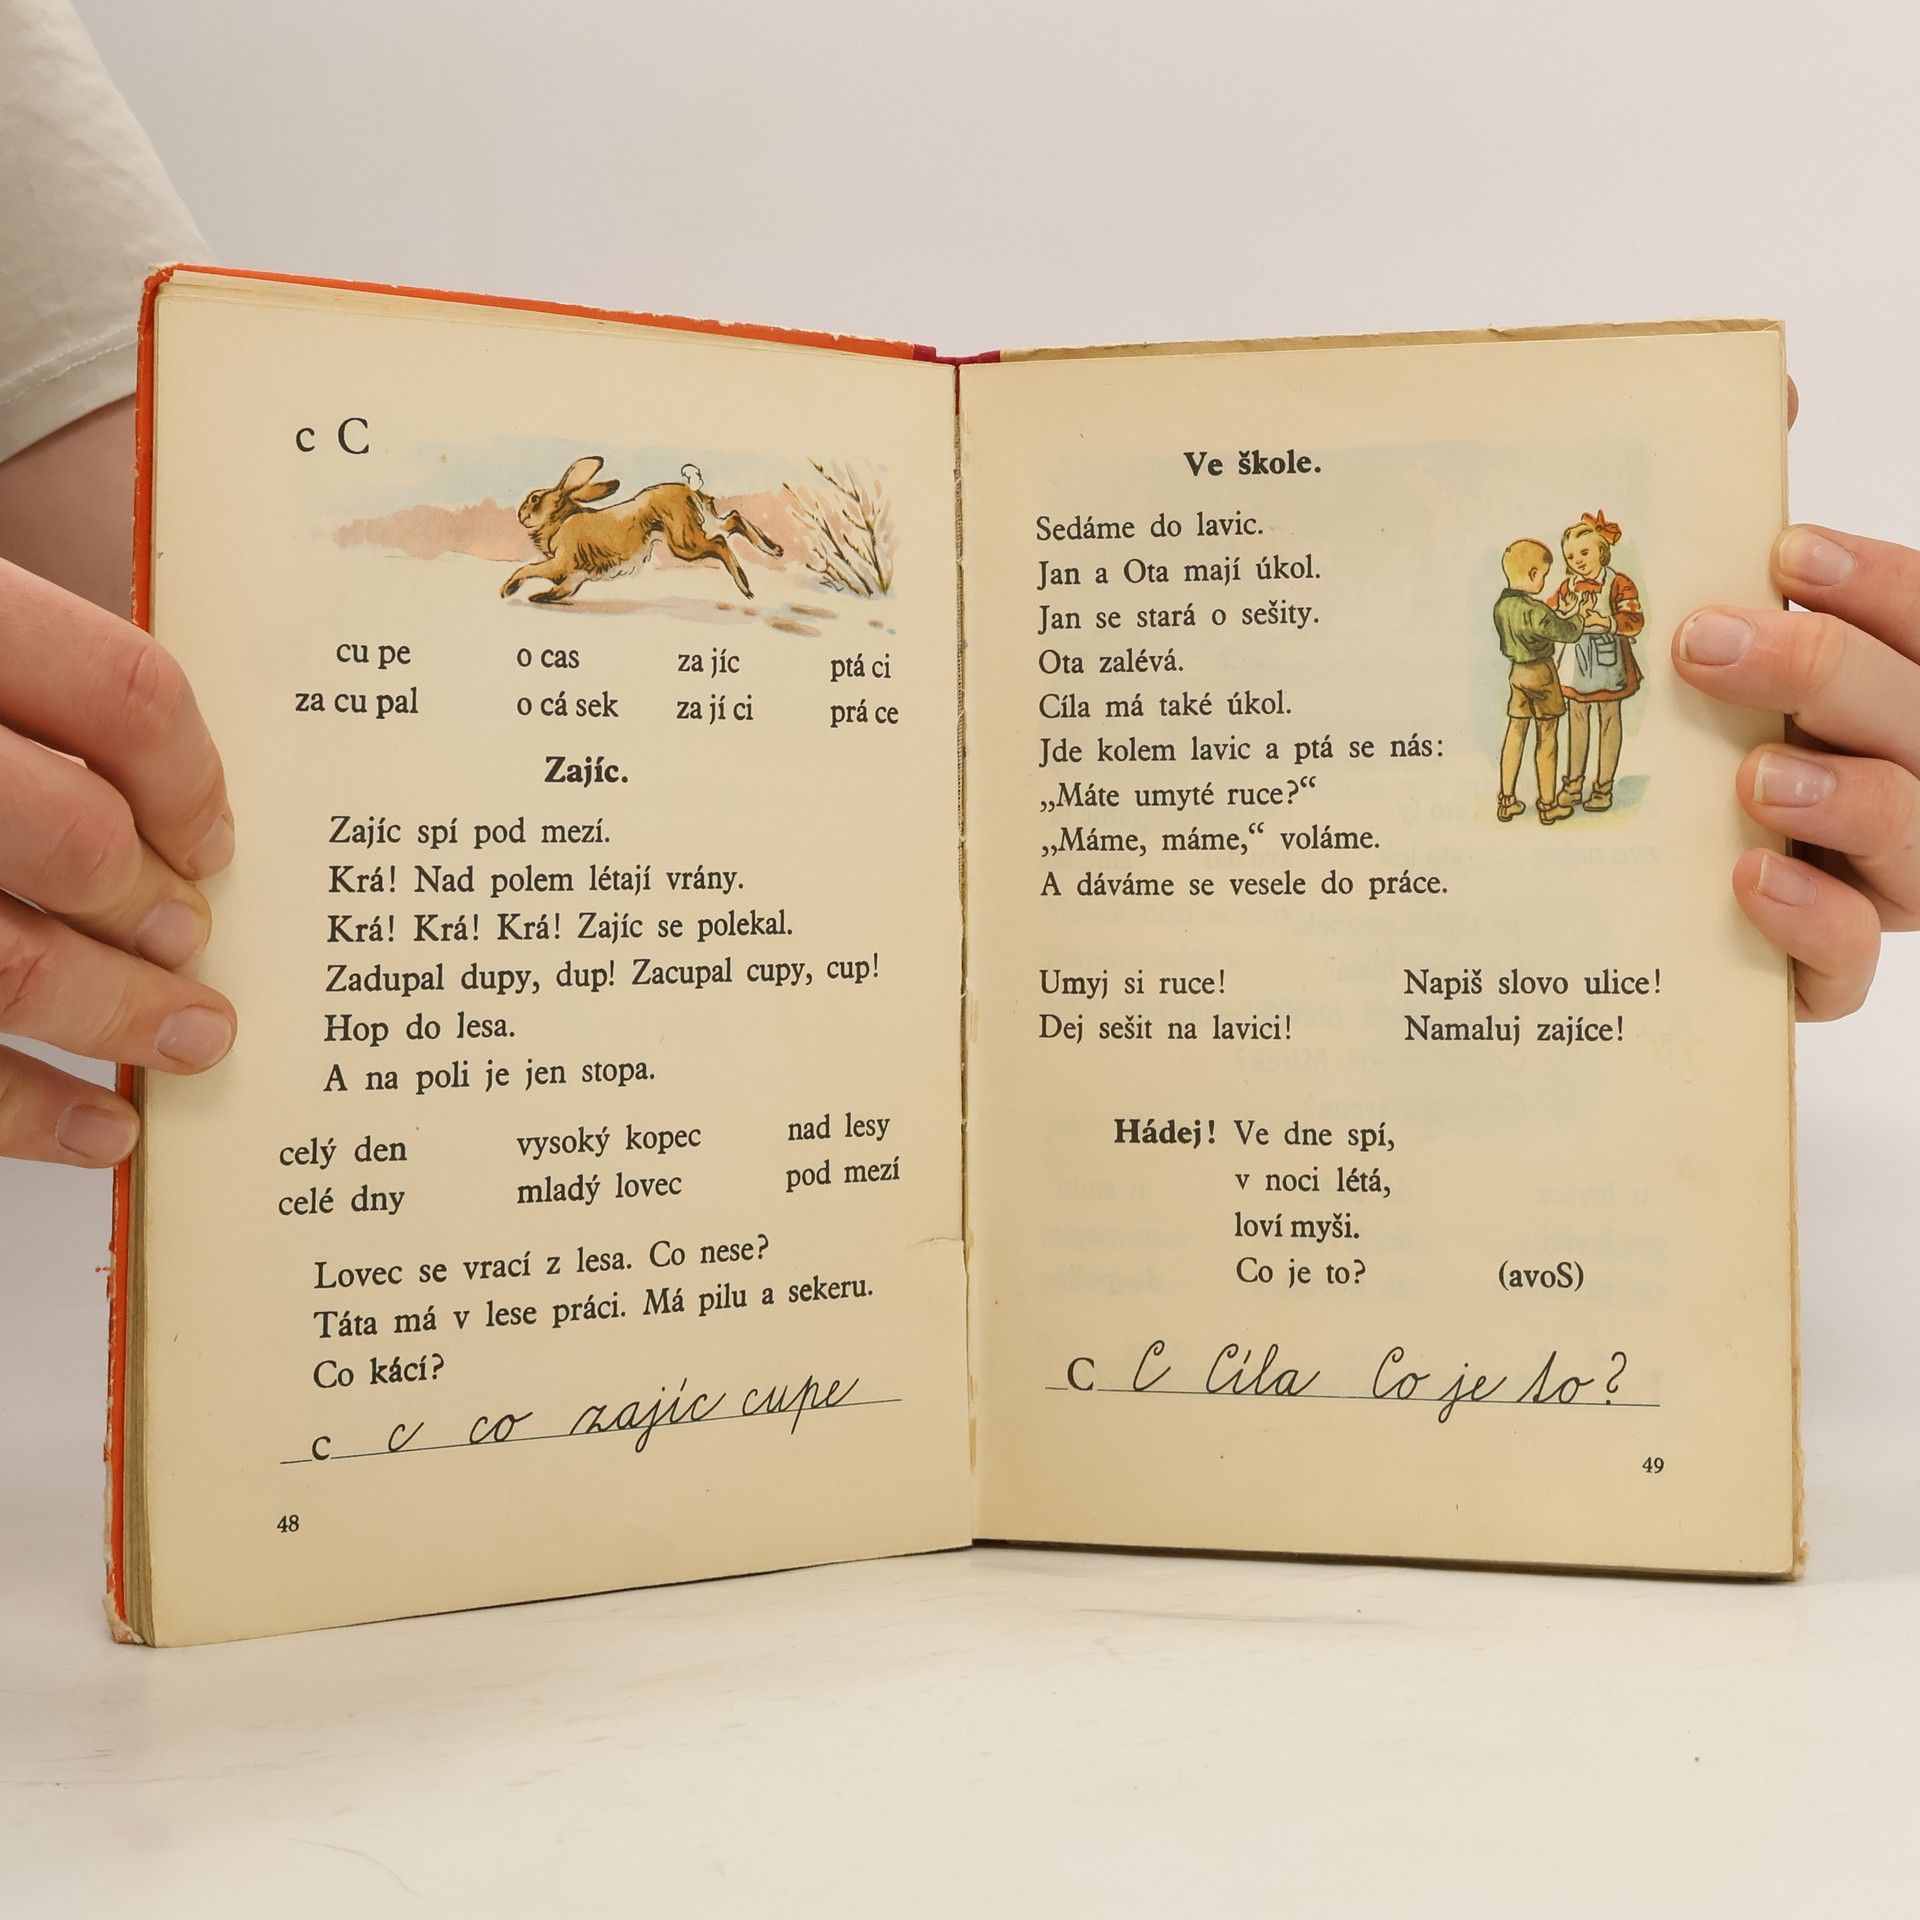 c C
cu pe o cas za jíc ptá ci
za cu pal o cá sek za jí ci prá ce
Zajíc.
Zajíc spí pod mezí.
Krá! Nad polem létají vrány.
Krá! Krá! Krá! Zajíc se polekal.
Zadupal dupy, dup! Zacupal cupy, cup!
Hop do lesa.
A na poli je jen stopa.
celý den vysoký kopec nad lesy
celé dny mladý lovec pod mezí
Lovec se vrací z lesa. Co nese?
Táta má v lese práci. Má pilu a sekeru.
Co kácí?
c c co zajíc cupe
48
Ve škole.
Sedáme do lavic.
Jan a Ota mají úkol.
Jan se stará o sešity.
Ota zalévá.
Cíla má také úkol.
Jde kolem lavic a ptá se nás:
„Máte umyté ruce?“
„Máme, máme,“ voláme.
A dáváme se vesele do práce.
Umyj si ruce! Napiš slovo ulice!
Dej sešit na lavici! Namaluj zajíce!
Hádej! Ve dne spí,
v noci létá,
loví myši.
Co je to? (avoS)
C C Cíla Co je to?
49